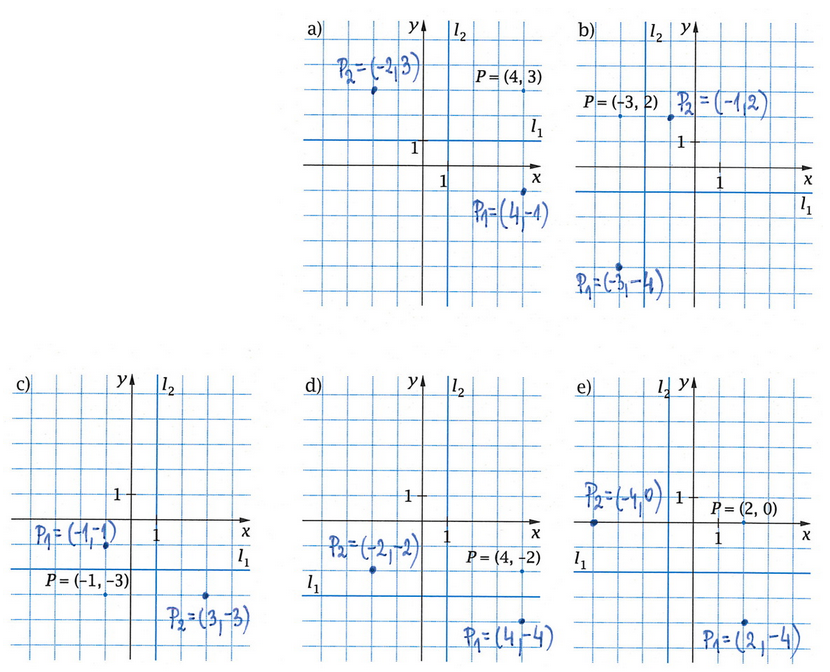 a) y l₂
P₂=(-2,3)
P = (4, 3)
l₁
1
1 x
P₁=(4,-1)
b) l₂ y
P = (-3, 2) P₂ = (-1,2)
1
1 x
l₁
P₁=(-3,-4)
c) y l₂
1
P₁=(-1,-1) 1 x
l₁
P = (-1, -3)
P₂=(3,-3)
d) y l₂
1
1 x
P₂=(-2,-2)
P = (4, -2)
l₁
P₁=(4,-4)
e) l₂ y
P₂=(-4,0) 1
P = (2, 0)
1 x
l₁
P₁=(2,-4)